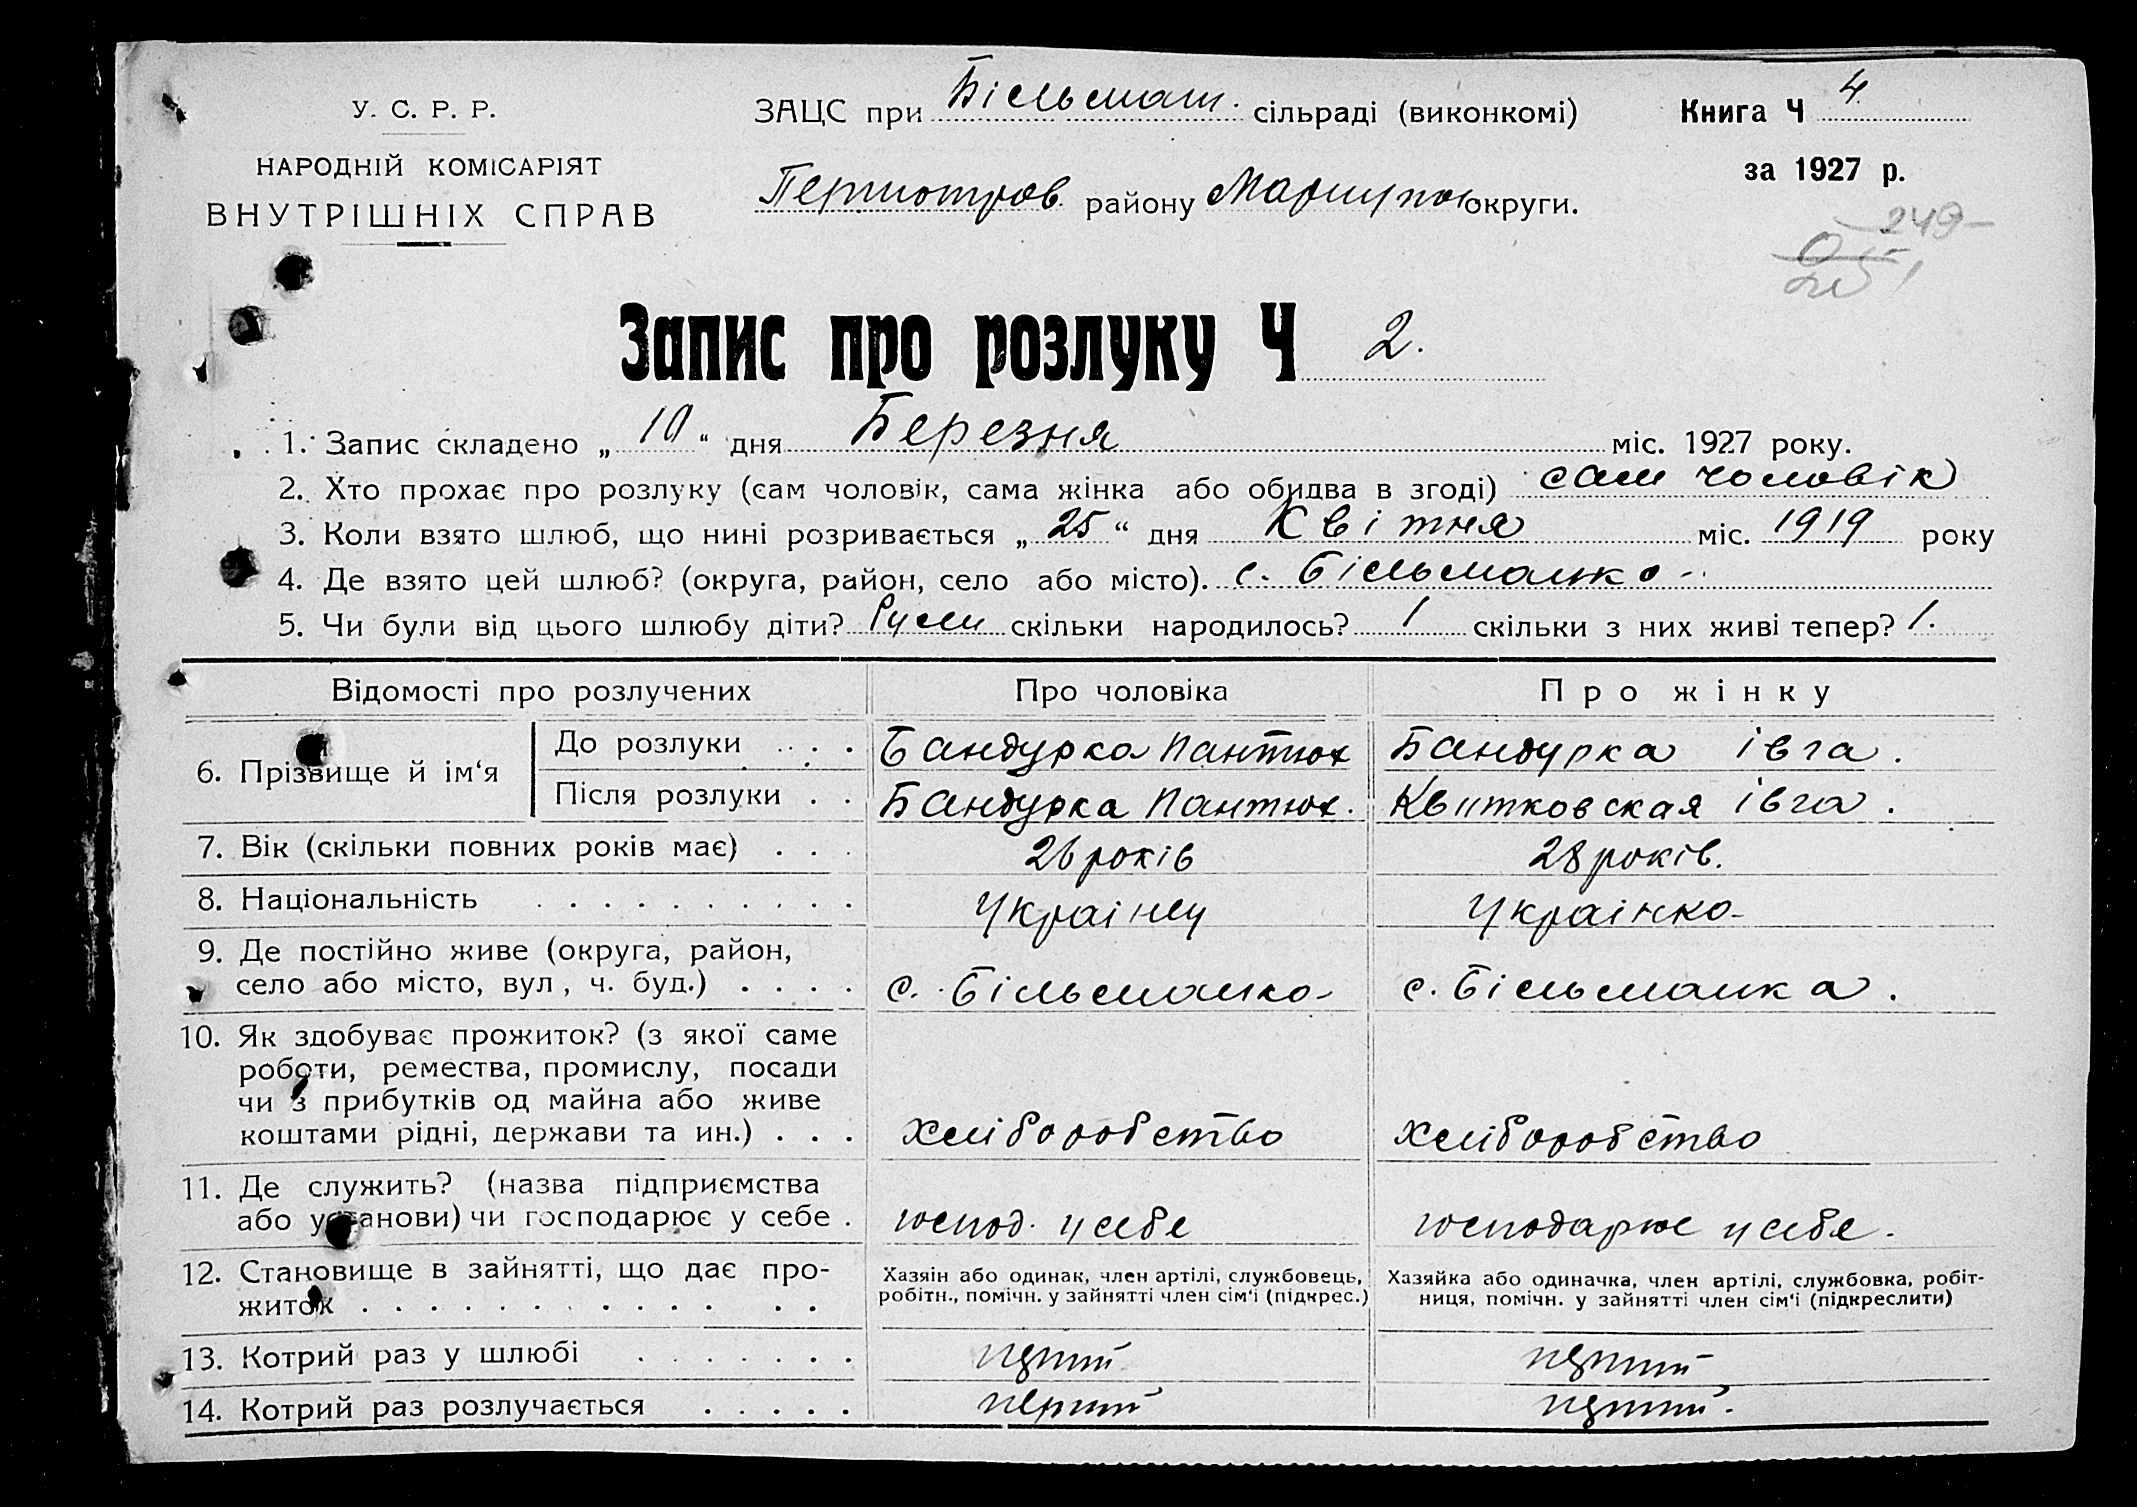 У. С. Р. Р.
НАРОДНІЙ КОМІСАРІЯТ
ВНУТРІШНІХ СПРАВ
ЗАЦС при Більмат. сільраді (виконкомі)
району Маріупол округи.
Книга Ч 4
за 1927 р.
249
Запис про розлуку Ч 2.
1. Запис складено „ 10 “ дня Березня міс. 1927 року.
2. Хто прохає про розлуку (сам чоловік, сама жінка або обидва в згоді) сам чоловік
3. Коли взято шлюб, що нині розривається „ 25 “ дня Квітня міс. 1919 року
4. Де взято цей шлюб? (округа, район, село або місто). с. Більманка
5. Чи були від цього шлюбу діти? скільки народилось? 1 скільки з них живі тепер? 1.
Відомості про розлучених Про чоловіка Про жінку
6. Прізвище й ім‘я
До розлуки . . . Бандурка Пантюх Бандурка Івга.
Після розлуки . . Бандурка Пантюх. Квитковская Івга.
7. Вік (скільки повних років має) . . . 26 років 28 років.
8. Національність . . . . . . . . . . Українец Українка
9. Де постійно живе (округа, район,
село або місто, вул, ч. буд.) . . . . с. Більманка с. Більманка.
10. Як здобуває прожиток? (з якої саме
роботи, ремества, промислу, посади
чи з прибутків од майна або живе
коштами рідні, держави та ин.) . . . хліборобство хліборобство
11. Де служить? (назва підприємства
або установи) чи господарює у себе . господ. у себе господарює у себе.
12. Становище в зайнятті, що дає про-
житок . . . . . . . . . . . . . .
Хазяін або одинак, член артілі, службовець,
робітн., помічн. у зайнятті член сім‘і (підкрес.)
Хазяйка або одиначка, член артілі, службовка, робіт-
ниця, помічн. у зайнятті член сім‘і (підкреслити)
13. Котрий раз у шлюбі . . . . . . . перший перший
14. Котрий раз розлучається . . . . . перший перший.